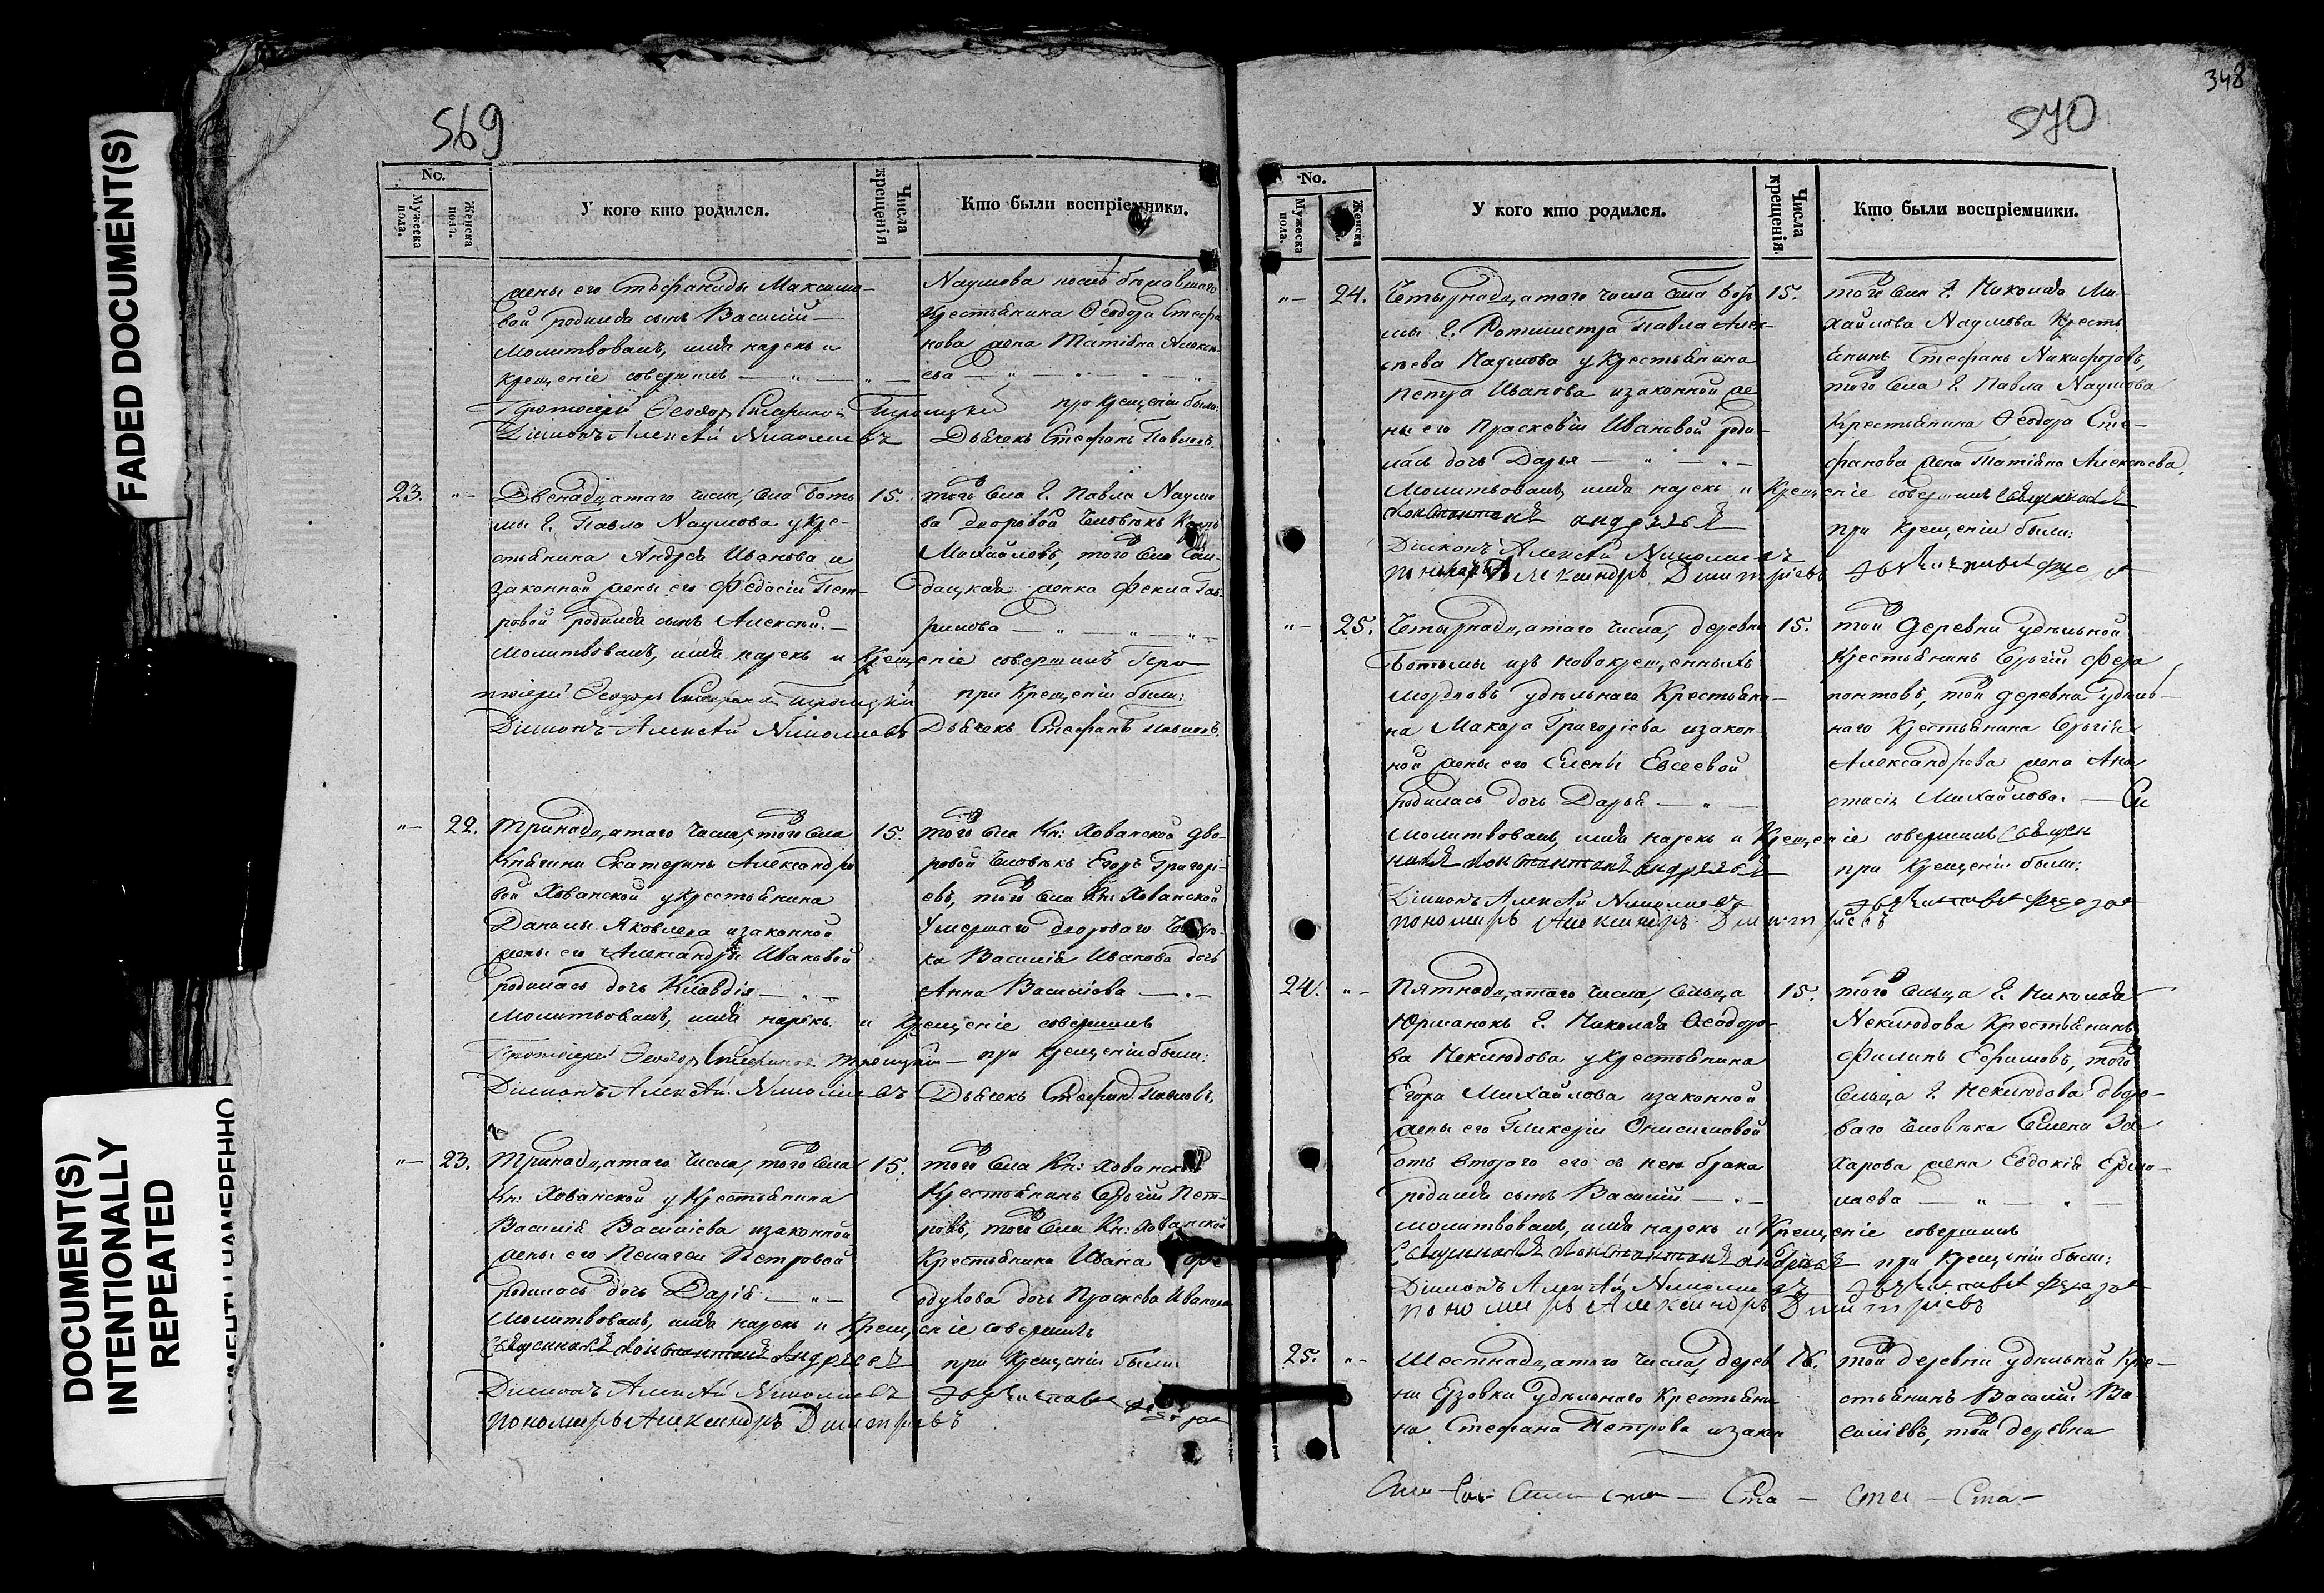 FADED DOCUMENT(S)
DOCUMENT(S)
INTENTIONALLY
REPEATED
569
No.
Мужеска пола.
Женска пола.
У кого кто родился.
Числа крещенія
Кто были воспріемники.
жены его Стефаниды Максимо-
вой родился сынъ Василій
молитвовалъ, имя нарекъ и
крещеніе совершилъ
Протоіерей Ѳеодор Троицкій
Діаконъ Алексѣй Николаевъ
Наумова
Крестьянина Ѳеодора Стефа
нова жена Татіяна Алексѣ-
ева
при крещеніи были:
Дьячекъ Стефанъ Павловъ.
23. Двенадцатаго числа, села Боть
мы Г. Павла Наумова у кре-
стьянина Андрея Иванова и
законной жены его Федосіи Пет-
ровой родился сынъ Алексѣй.
молитвовалъ, имя нарекъ и крещеніе совершилъ Про
тоіерей Ѳеодоръ Троицкій
Діаконъ Алексѣй Николаевъ
15.
того села Г. Павла Наумо
ва дворовой человѣкъ
Михайловъ, того села Сол-
дацкая женка Фекла Гав-
рилова
при крещеніи были:
Дьячекъ Стефанъ Павловъ.
22. Тринадцатаго числа, того села
Княгини Екатерины Александро
вой Хованской у крестьянина
Данилы Яковлева и законной
жены его Александры Ивановой
родилась дочь Клавдія
молитвовалъ, имя нарекъ и крещеніе совершилъ
Протоіерей Ѳеодор Троицкій
Діаконъ Алексѣй Николаевъ
15.
того села Кн: Хованской дво-
ровой человѣкъ Егоръ Григорі-
евъ, того села Кн: Хованской
умершаго двороваго человѣ-
ка Василія Иванова дочь
Анна Василіева
при крещеніи были:
Дьячекъ Стефанъ Павловъ.
23. Тринадцатаго числа, того села
Кн: Хованской у крестьянина
Василія Василіева и законной
жены его Пелагеи Петровой
родилась дочь Дарія
молитвовалъ, имя нарекъ и крещеніе совершилъ
Священникъ Константинъ Андреевъ
Діаконъ Алексѣй Николаевъ
пономарь Александръ Димитріевъ
15.
того села Кн: Хованской
Крестьянинъ Сергій Пет-
ровъ, того села Кн: Хованской
Крестьянина Ивана
дочь Праскева Иванова
при крещеніи были:
348
570
No.
Мужеска пола.
Женска пола.
У кого кто родился.
Числа крещенія.
Кто были воспріемники.
24. Четырнадцатаго числа села Боть
мы Г. Ротмистра Павла Алек-
сѣева Наумова у крестьянина
Петра Иванова и законной же
ны его Праскевіи Ивановой роди-
лась дочь Дарья
молитвовалъ, имя нарекъ и крещеніе совершилъ Священникъ
Константинъ Андреевъ
Діаконъ Алексѣй Николаевъ
пономарь Александръ Димитріевъ
15.
того села Г. Николая Ми-
хайлова Наумова Кресть
янинъ Стефанъ Никифоровъ,
того села Г. Павла Наумова
Крестьянина Ѳеодора Сте-
фанова жена Татіяна Алексѣева,
при крещеніи были:
25. Четырнадцатаго числа, деревни
Ботьмы изъ новокрещенныхъ
мордовъ удѣльнаго крестьяни-
на Макара Григоріева и закон
ной жены его Елены Евсеевой
родилась дочь Дарья
молитвовалъ, имя нарекъ и крещеніе совершилъ Священ
никъ Константинъ Андреевъ
Діаконъ Алексѣй Николаевъ
пономарь Александръ Димитріевъ
15.
той деревни удѣльной
Крестьянинъ Сергій Фера
понтовъ, той деревни удѣль-
наго Крестьянина Сергія
Александрова жена Ана
стасія Михайлова.
при крещеніи были:
24. Пятнадцатаго числа, сельца
Юрманокъ Г. Николая Ѳеодоро-
ва Неклюдова у крестьянина
Егора Михайлова и законной
жены его Гликеріи Онисимовой
отъ втораго его съ нею брака
родился сынъ Василій
молитвовалъ, имя нарекъ и крещеніе совершилъ
Священникъ Константинъ Андреевъ
Діаконъ Алексѣй Николаевъ
пономарь Александръ Димитріевъ
15.
того сельца Г. Николая
Неклюдова Крестьянинъ
Филипъ Ефимовъ, того
сельца Г. Неклюдова дворо-
ваго человѣка Семена За
харова жена Евдокія Ермо-
лаева
при крещеніи были:
25. Шестнадцатаго числа, дерев
ни Ерзовки удѣльнаго крестьяни-
на Стефана Петрова и закон
16.
той деревни удѣльной Кре-
стьянинъ Василій Ва
силіевъ, той деревни